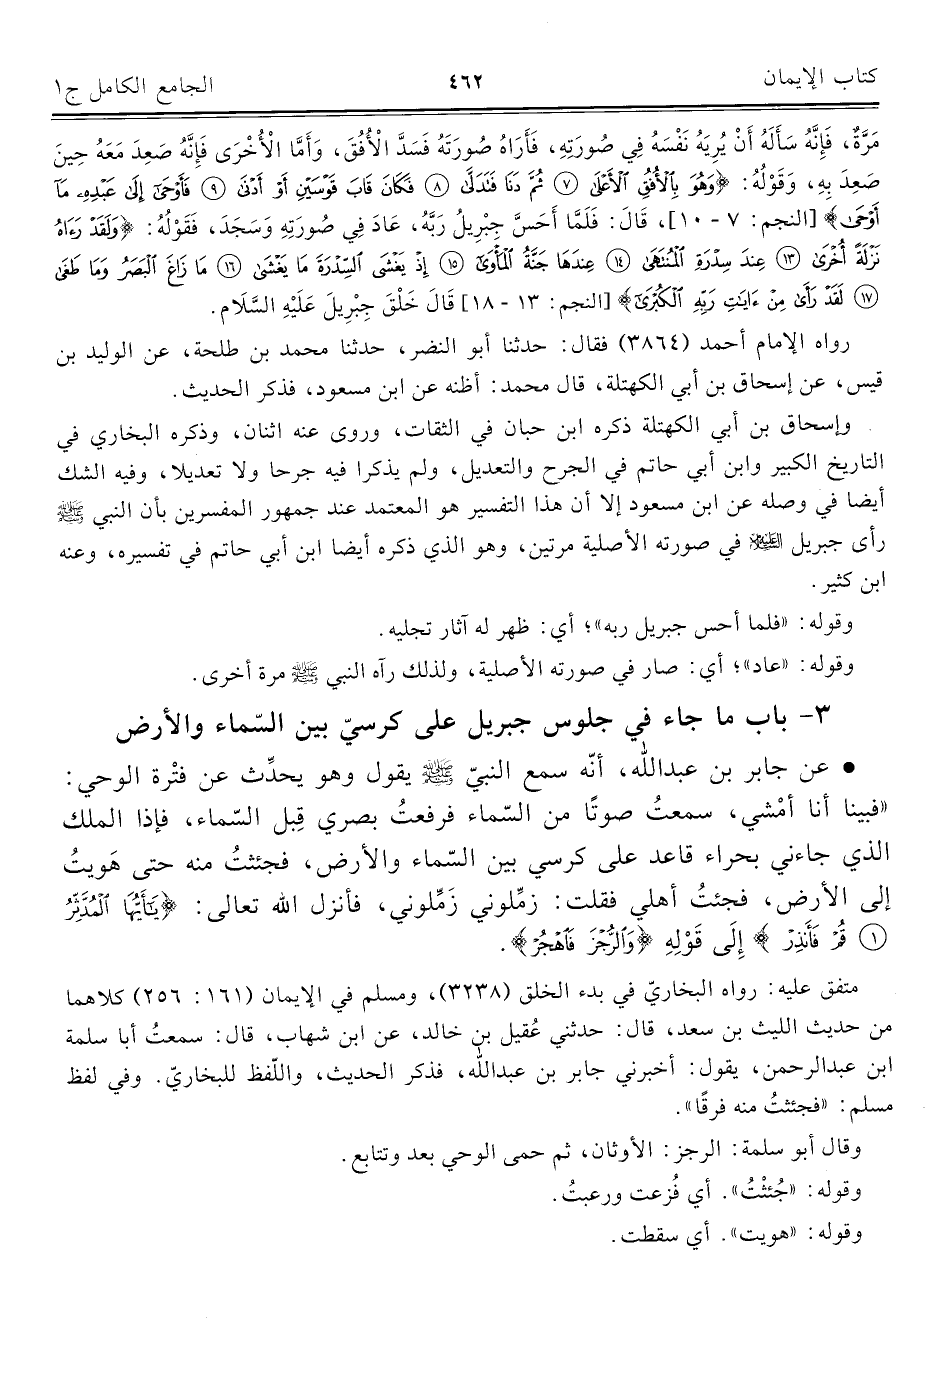 كتاب الإيمان ٤٦٢ الجامع الكامل ج١
مَرَّةٌ، فَإِنَّهُ سَأَلَهُ أَنْ يُرِيَهُ نَفْسَهُ فِي صُورَتِهِ، فَأَرَاهُ صُورَتَهُ فَسَدَّ الْأُفُقَ، وَأَمَّا الْأُخْرَى فَإِنَّهُ صَعِدَ مَعَهُ حِينَ
صَعِدَ بِهِ، وَقَوْلُهُ: ﴿وَهُوَ بِٱلْأُفُقِ ٱلْأَعْلَىٰ ۝٧ ثُمَّ دَنَا فَتَدَلَّىٰ ۝٨ فَكَانَ قَابَ قَوْسَيْنِ أَوْ أَدْنَىٰ ۝٩ فَأَوْحَىٰٓ إِلَىٰ عَبْدِهِۦ مَآ
أَوْحَىٰ﴾ [النجم: ٧ - ١٠]، قَالَ: فَلَمَّا أَحَسَّ جِبْرِيلُ رَبَّهُ، عَادَ فِي صُورَتِهِ وَسَجَدَ، فَقَوْلُهُ: ﴿وَلَقَدْ رَءَاهُ
نَزْلَةً أُخْرَىٰ ۝١٣ عِندَ سِدْرَةِ ٱلْمُنتَهَىٰ ۝١٤ عِندَهَا جَنَّةُ ٱلْمَأْوَىٰٓ ۝١٥ إِذْ يَغْشَى ٱلسِّدْرَةَ مَا يَغْشَىٰ ۝١٦ مَا زَاغَ ٱلْبَصَرُ وَمَا طَغَىٰ
۝١٧ لَقَدْ رَأَىٰ مِنْ ءَايَٰتِ رَبِّهِ ٱلْكُبْرَىٰٓ﴾ [النجم: ١٣ - ١٨] قَالَ خَلْقَ جِبْرِيلَ عَلَيْهِ السَّلَام.
رواه الإمام أحمد (٣٨٦٤) فقال: حدثنا أبو النضر، حدثنا محمد بن طلحة، عن الوليد بن
قيس، عن إسحاق بن أبي الكهتلة، قال محمد: أظنه عن ابن مسعود، فذكر الحديث.
وإسحاق بن أبي الكهتلة ذكره ابن حبان في الثقات، وروى عنه اثنان، وذكره البخاري في
التاريخ الكبير وابن أبي حاتم في الجرح والتعديل، ولم يذكرا فيه جرحا ولا تعديلا، وفيه الشك
أيضا في وصله عن ابن مسعود إلا أن هذا التفسير هو المعتمد عند جمهور المفسرين بأن النبي ﷺ
رأى جبريل عليه السلام في صورته الأصلية مرتين، وهو الذي ذكره أيضا ابن أبي حاتم في تفسيره، وعنه
ابن كثير.
وقوله: «فلما أحس جبريل ربه»؛ أي: ظهر له آثار تجليه.
وقوله: «عاد»؛ أي: صار في صورته الأصلية، ولذلك رآه النبي ﷺ مرة أخرى.
٣- باب ما جاء في جلوس جبريل على كرسيّ بين السّماء والأرض
● عن جابر بن عبداللَّه، أنّه سمع النبيّ ﷺ يقول وهو يحدِّث عن فتْرة الوحي:
«فبينا أنا أمْشي، سمعتُ صوتًا من السّماء فرفعتُ بصري قِبل السّماء، فإذا الملك
الذي جاءني بحراء قاعد على كرسي بين السّماء والأرض، فجئثتُ منه حتى هَويتُ
إلى الأرض، فجئتُ أهلي فقلت: زمِّلوني زَمِّلوني، فأنزل الله تعالى: ﴿يَٰٓأَيُّهَا ٱلْمُدَّثِّرُ
۝١ قُمْ فَأَنذِرْ ﴾ إِلَى قَوْلِهِ ﴿وَٱلرُّجْزَ فَٱهْجُرْ﴾.
متفق عليه: رواه البخاريّ في بدء الخلق (٣٢٣٨)، ومسلم في الإيمان (١٦١: ٢٥٦) كلاهما
من حديث الليث بن سعد، قال: حدثني عُقيل بن خالد، عن ابن شهاب، قال: سمعتُ أبا سلمة
ابن عبدالرحمن، يقول: أخبرني جابر بن عبداللَّه، فذكر الحديث، واللّفظ للبخاريّ. وفي لفظ
مسلم: «فجئثتُ منه فرقًا».
وقال أبو سلمة: الرجز: الأوثان، ثم حمى الوحي بعد وتتابع.
وقوله: «جُئثْتُ». أي فُزعت ورعبتُ.
وقوله: «هويت». أي سقطت.